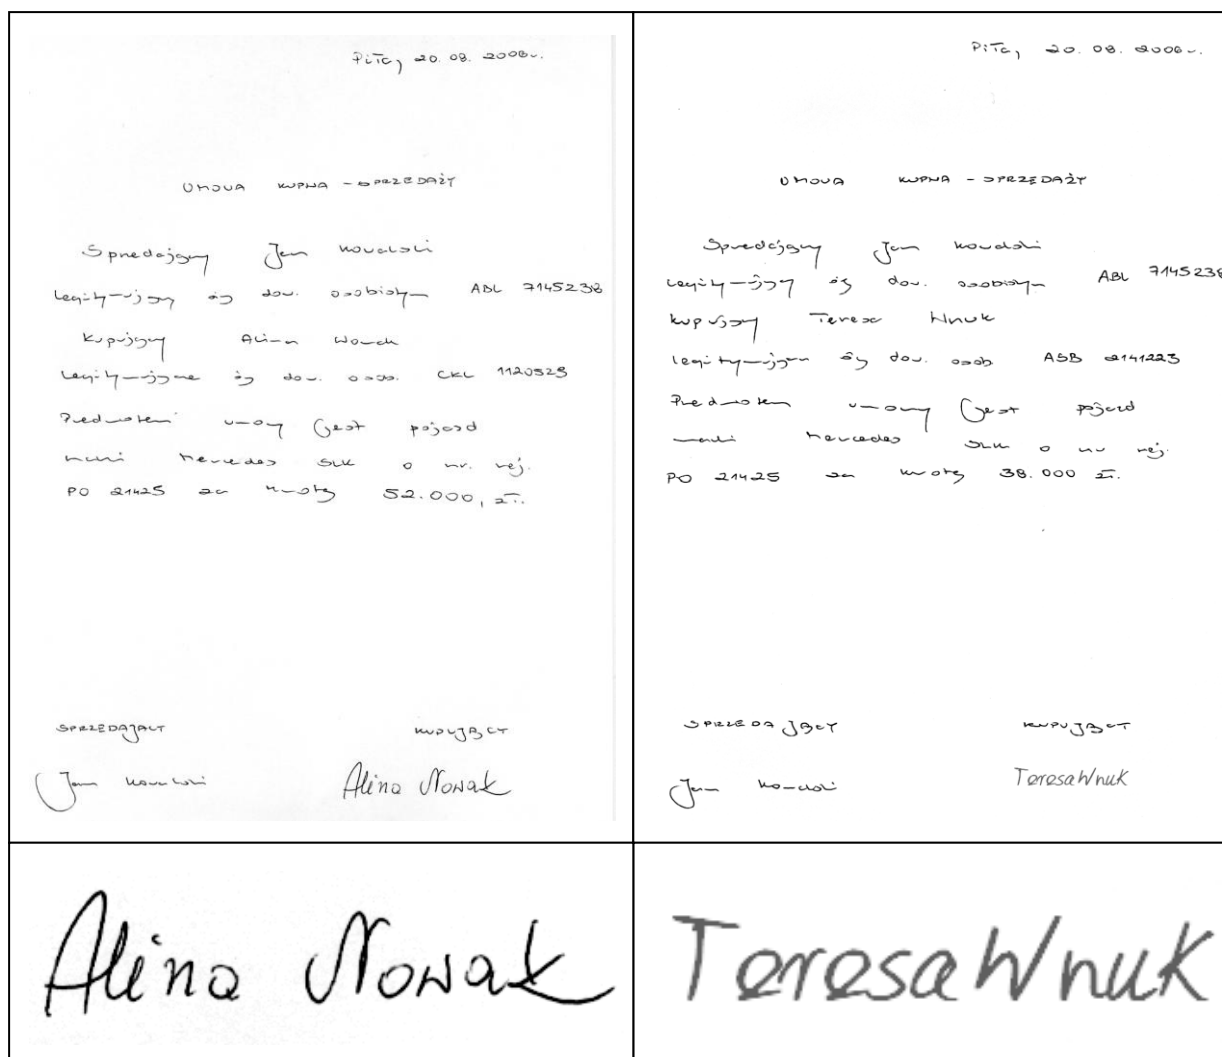 Piła, 20.08.2006r.
UMOWA KUPNA - SPRZEDAŻY
Sprzedający Jan Kowalski
legitymujący się dow. osobistym ABL 7145238
Kupujący Alina Nowak
legitymująca się dow. osob. CKL 1120523
Przedmiotem umowy jest pojazd
marki Mercedes SLK o nr. rej.
PO 21425 za kwotę 52.000, zł.
SPRZEDAJĄCY KUPUJĄCY
Jan Kowalski Alina Nowak
Piła, 20.08.2006r.
UMOWA KUPNA - SPRZEDAŻY
Sprzedający Jan Kowalski
legitymujący się dow. osobistym ABL 7145238
kupujący Teresa Wnuk
legitymująca się dow. osob ASB 2141223
Przedmiotem umowy jest pojazd
marki Mercedes SLK o nr rej.
PO 21425 za kwotę 38.000 zł.
SPRZEDAJĄCY KUPUJĄCY
Jan Kowalski Teresa Wnuk
Alina Nowak
Teresa Wnuk